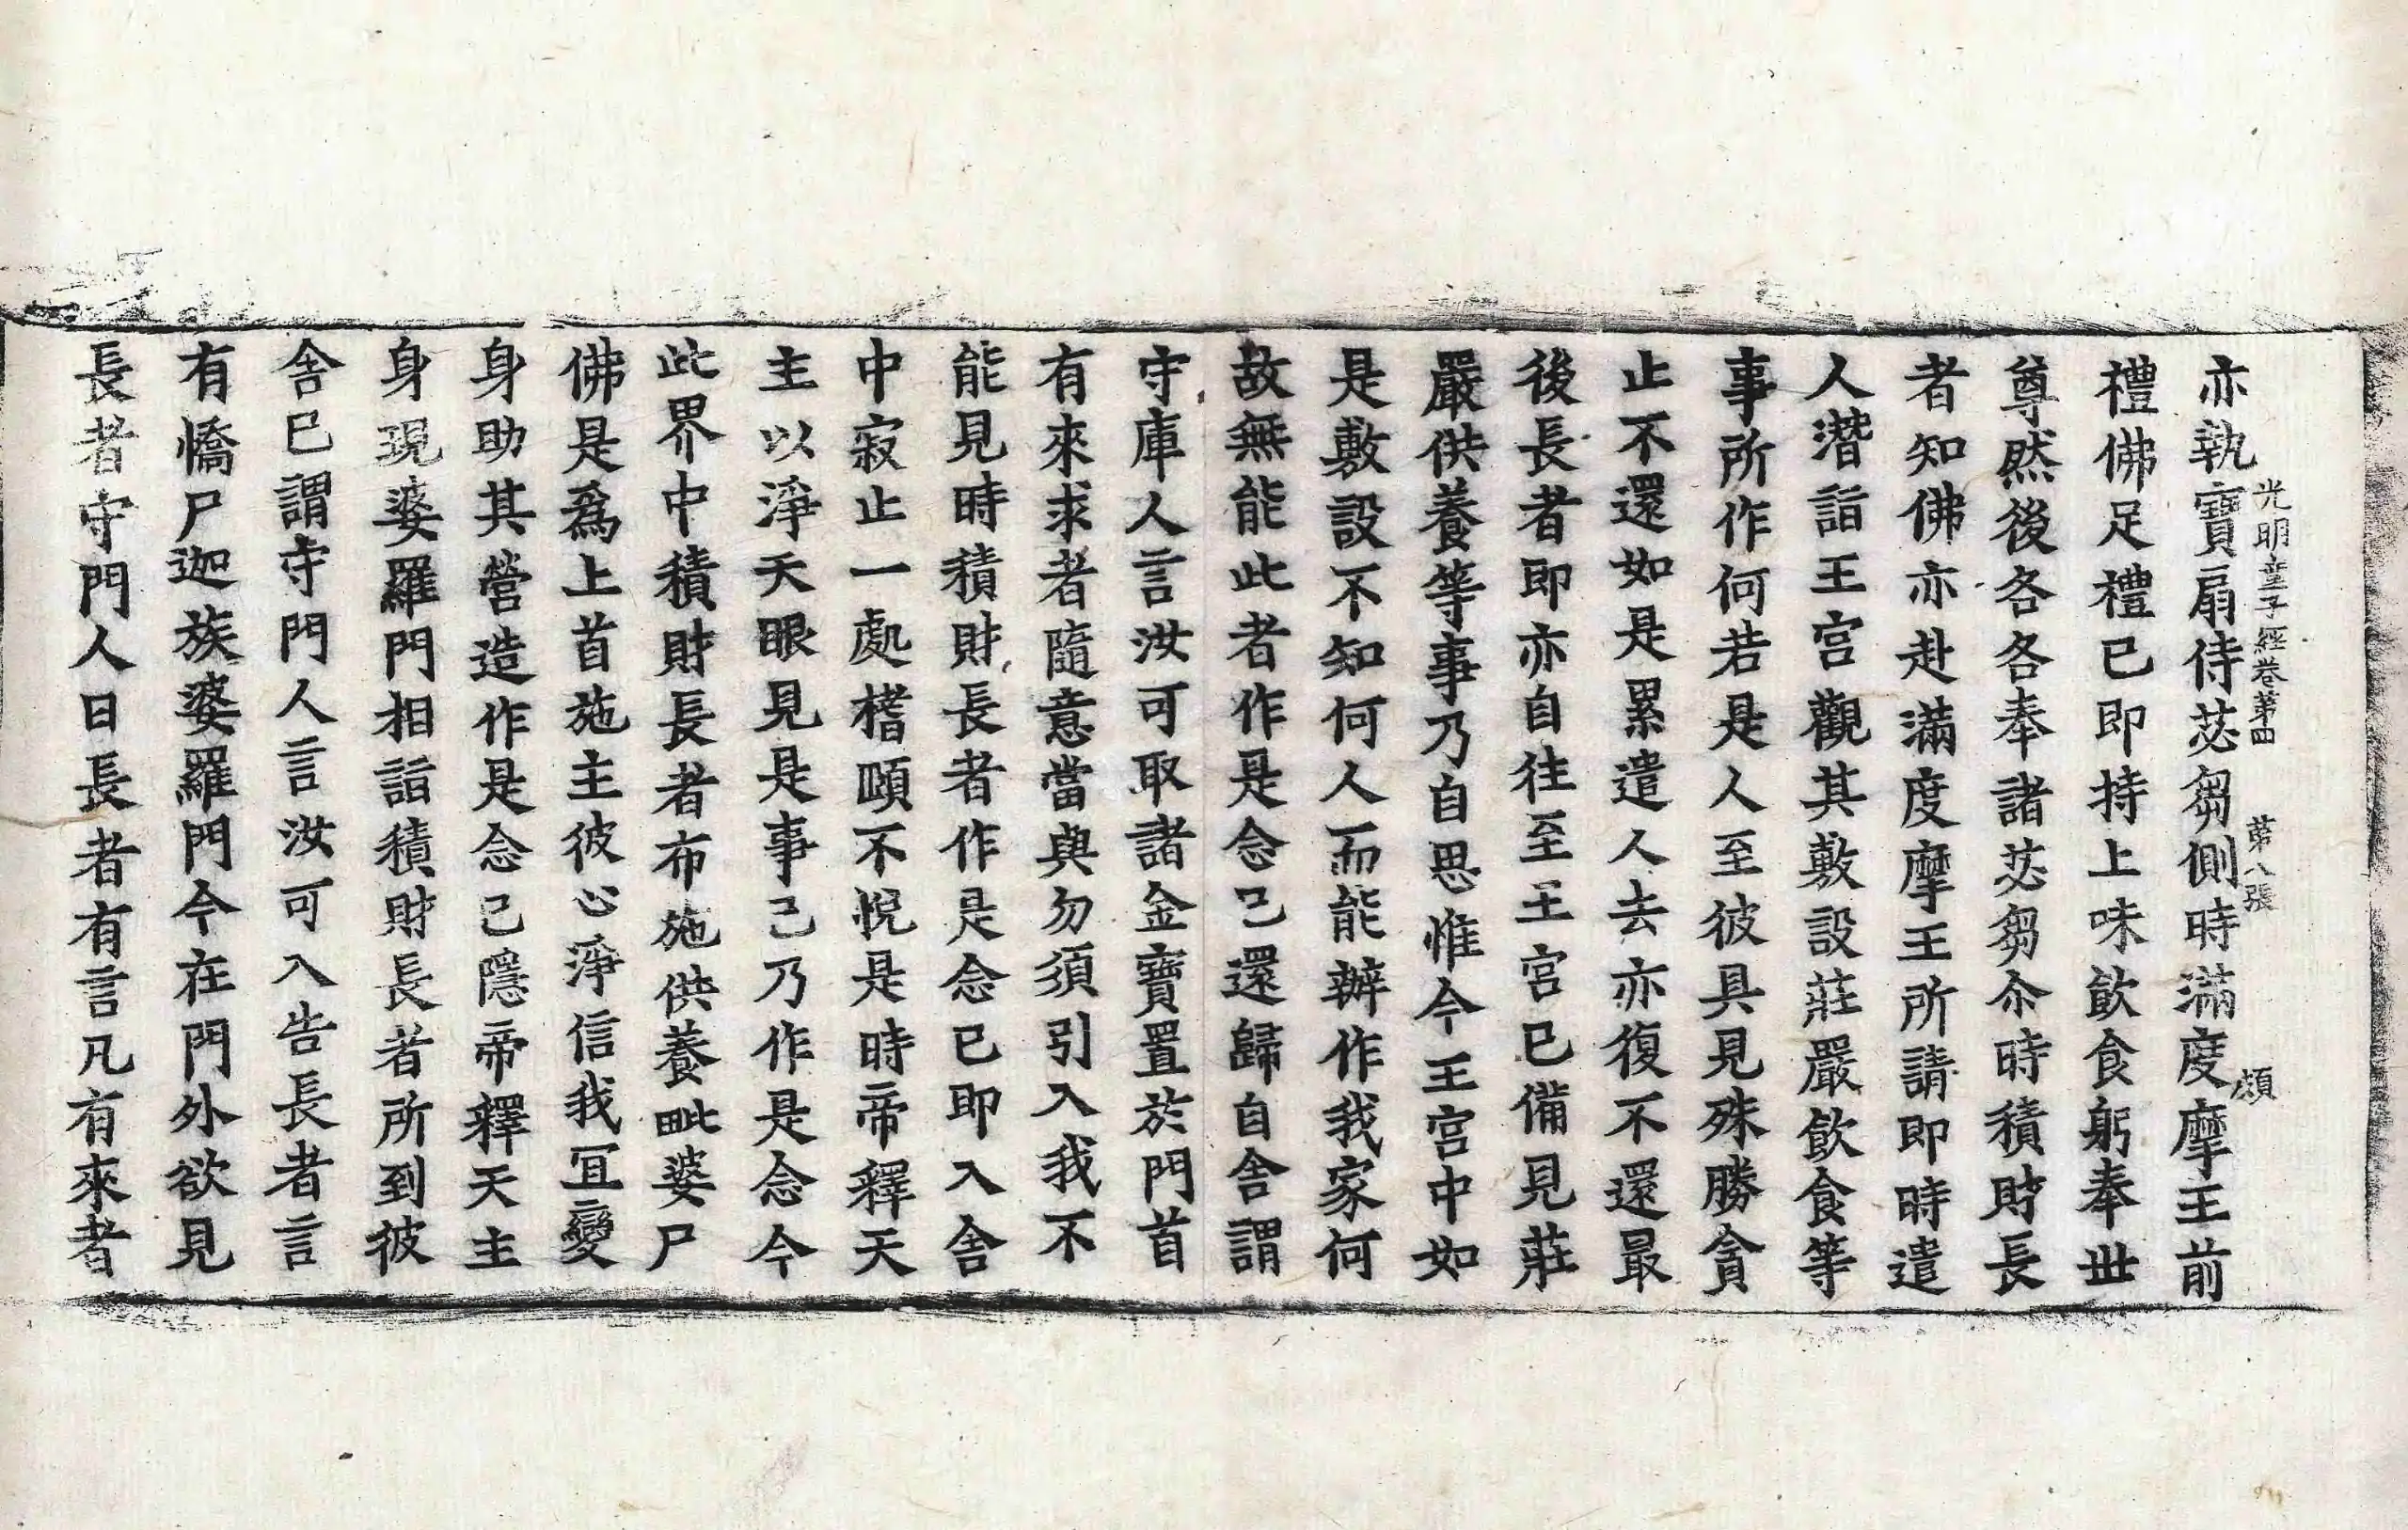 亦執寶扇侍苾芻側時滿度摩王前
光明童子經卷第四　第八張　頌
禮佛足禮已即持上味飮食躬奉世
尊然後各各奉諸苾芻尒時積財長
者知佛亦赴滿度摩王所請即時遣
人潛詣王宮觀其敷設莊嚴飮食等
事所作何若是人至彼具見殊勝貪
止不還如是累遣人去亦復不還最
後長者即亦自往至王宮已備見莊
嚴供養等事乃自思惟今王宮中如
是敷設不知何人而能辦作我家何
故無能此者作是念已還歸自舍謂
守庫人言汝可取諸金寶置於門首
有來求者隨意當與勿須引入我不
能見時積財長者作是念已即入舍
中寂止一處㯓頤不悅是時帝釋天
主以淨天眼見是事已乃作是念今
此界中積財長者布施供養毗婆尸
佛是爲上首施主彼心淨信我冝變
身助其營造作是念已隱帝釋天主
身現婆羅門相詣積財長者所到彼
舍已謂守門人言汝可入告長者言
有憍尸迦族婆羅門今在門外欲見
長者守門人曰長者有言凡有來者